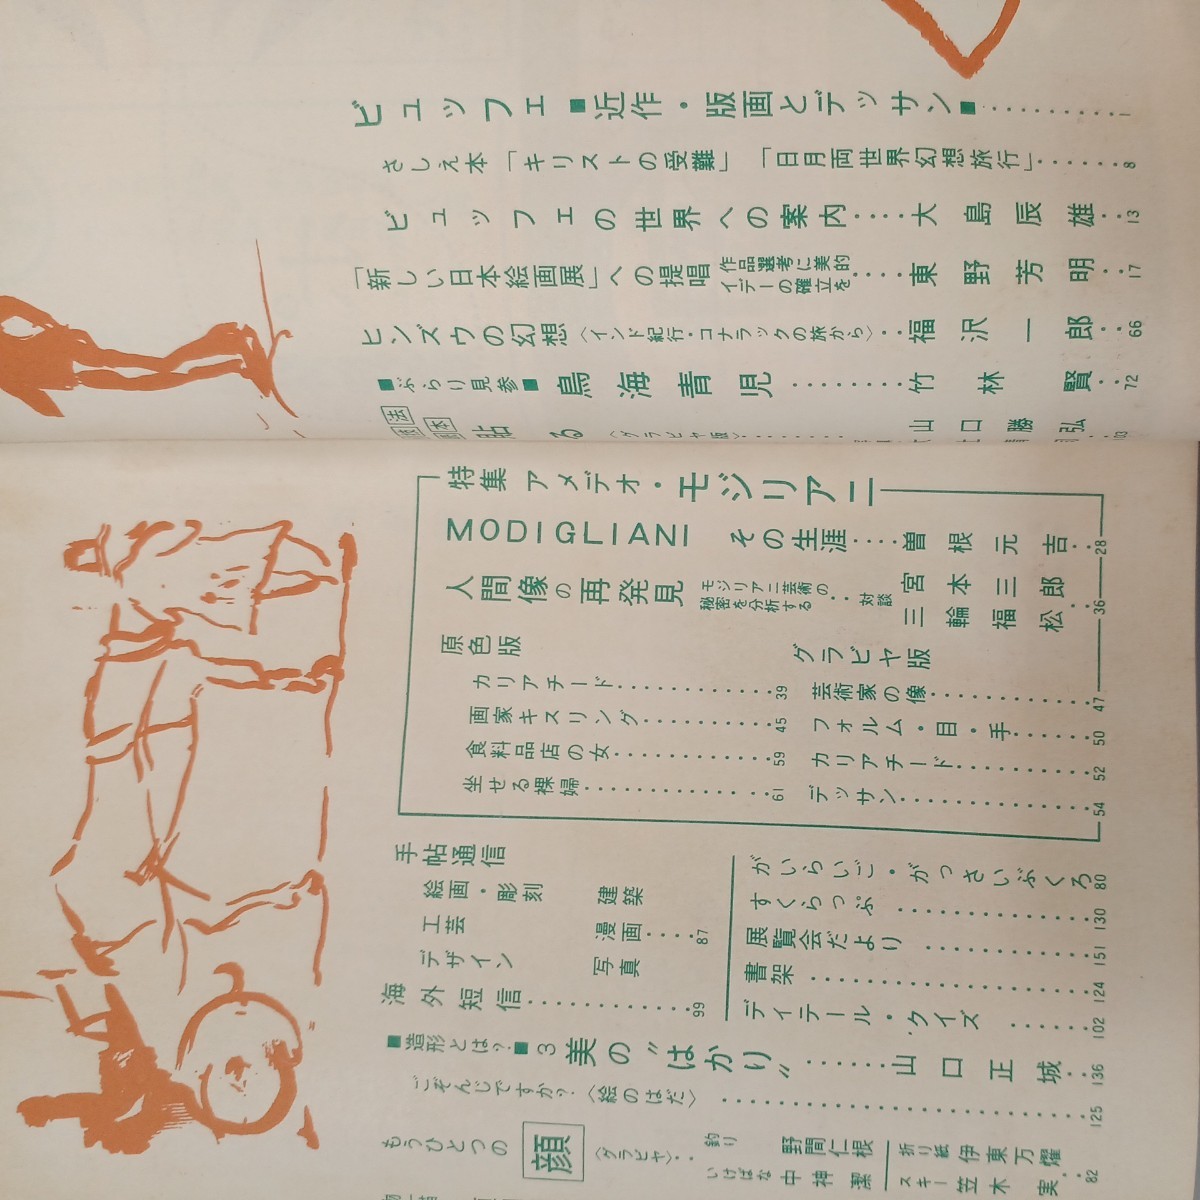 ビュッフェ■近作・版画とデッサン■………1
さしえ本「キリストの受難」「日月両世界幻想旅行」……8
ビュッフェの世界への案内……大島辰雄‥13
「新しい日本絵画展」への提唱 作品選考に美的イデーの確立を……東野芳明‥17
ヒンズウの幻想〈インド紀行・コナラックの旅から〉‥福沢一郎‥66
■ぶらり見参■鳥海青児………竹林賢‥72
貼る〈グラビヤ版〉………山口勝弘 103
特集 アメデオ・モジリアニ
MODIGLIANI その生涯……曽根元吉‥28
人間像の再発見 モジリアニ芸術の秘密を分析する‥対談 宮本三郎 三輪福松‥36
原色版
カリアチード………39
画家キスリング………45
食料品店の女………59
坐せる裸婦………61
グラビヤ版
芸術家の像………47
フォルム・目・手………50
カリアチード………52
デッサン………54
手帖通信
絵画・彫刻 建築
工芸 漫画……87
デザイン 写真
海外短信………99
がいらいご・がっさいぶくろ 80
すくらっぷ………130
展覧会だより………151
書架………124
ディテール・クイズ……102
■造形とは?■3 美の〝はかり〟……山口正城‥136
ごぞんじですか?〈絵のはだ〉………125
もうひとつの顔〈グラビヤ〉‥
釣り 野間仁根
いけばな 中神潔
折り紙 伊東万燿
スキー 笠木実‥82